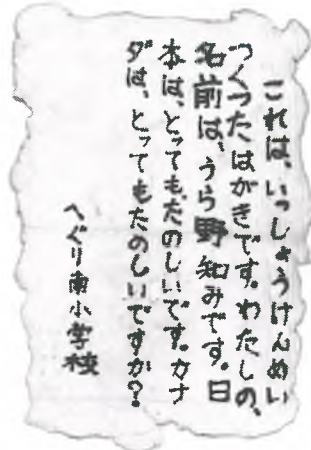 これは、いっしょうけんめい
つくったはがきです。わたしの、
名前は、うら野知みです。日
本は、とってもたのしいです。カナ
ダは、とってもたのしいですか?
へぐり南小学校